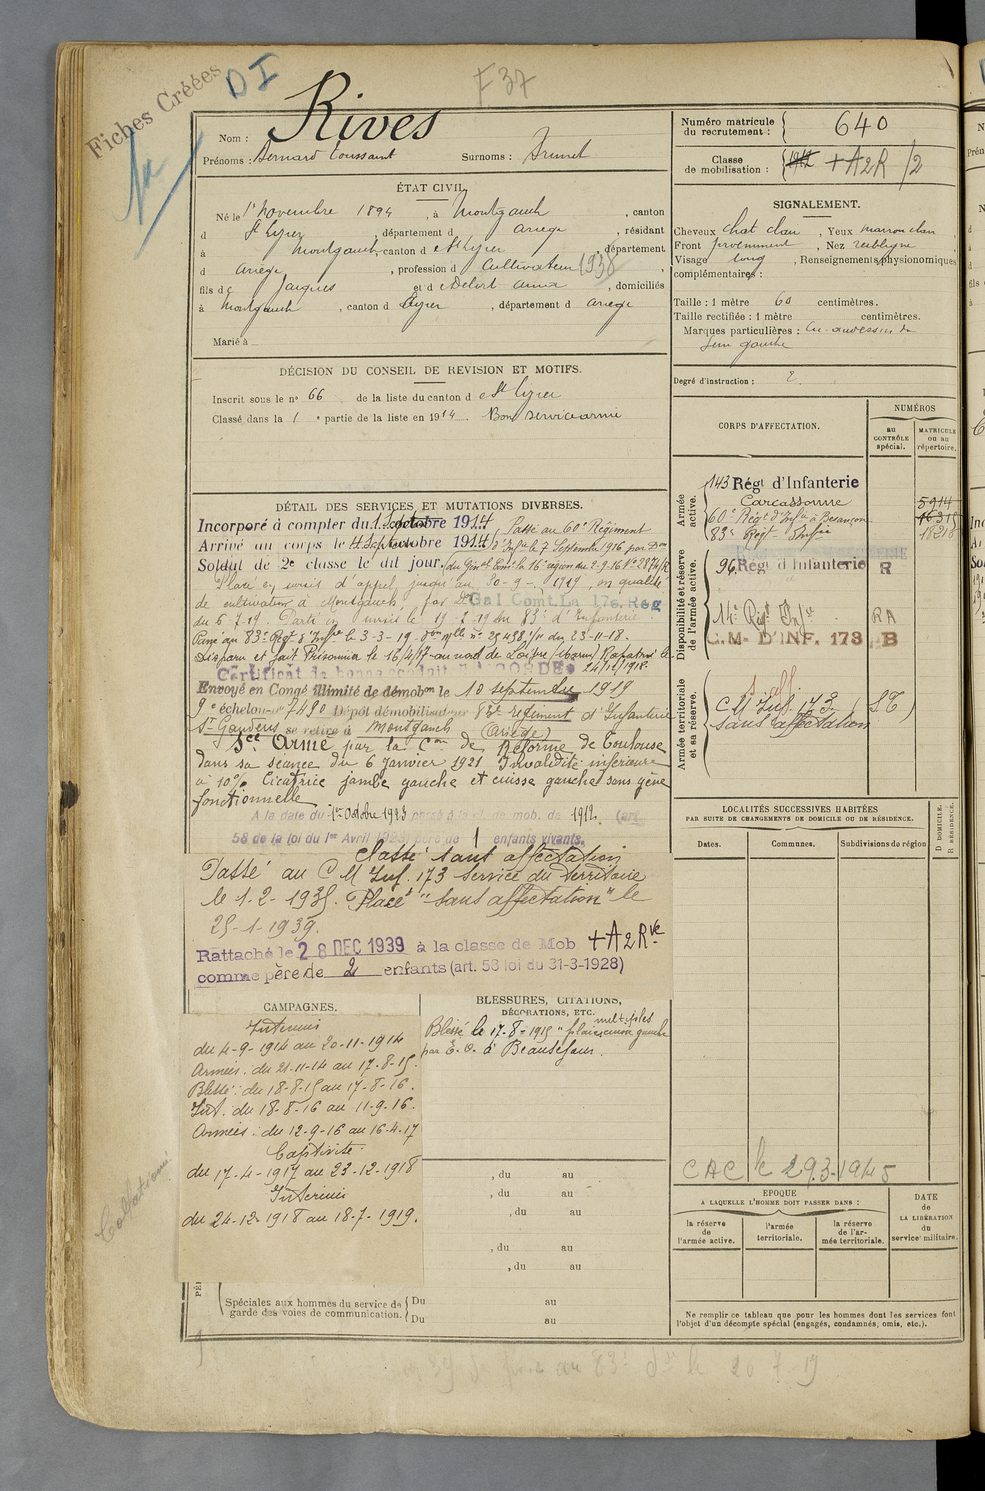 Fiches Créées
DI
F 37
Nom : Rives
Prénoms : Bernard Toussaint Surnoms : Brunet
ÉTAT CIVIL
Né le 1er novembre 1894, à Montgauch, canton
d St Lizier, département d Ariège, résidant
à Montgauch, canton d e St Lizier, département
d Ariège, profession d Cultivateur 1938,
fils d e Jacques et d e Delort Anna, domiciliés
à Montgauch, canton d Lizier, département d Ariège
Marié à
DÉCISION DU CONSEIL DE REVISION ET MOTIFS.
Inscrit sous le n° 66 de la liste du canton d e St Lizier
Classé dans la 1 e partie de la liste en 1914. Bon service armé
DÉTAIL DES SERVICES ET MUTATIONS DIVERSES.
Incorporé à compter du 1 septembre 1914 Passé au 60e Régiment
Arrivé au corps le 4 Septembre 1914 d'Infie le 7 Septembre 1916 par Don
Soldat de 2e classe le dit jour. du Gnal Comt la 16e région du 2-9-16 N° 2874/R
Placé en sursis d'appel jusqu'au 30-9-1919 en qualité
de cultivateur à Montgauch, par Don Gal Comt. La 17e. Reg
du 6-7-19. Parti en sursis le 19-7-19 du 83e d'Infanterie.
Passé au 83e Regt d'Infie le 3-3-19. Don Mlle n° 25498/11 du 23-11-18.
Disparu et fait Prisonnier le 16/4/17 au nord de Loivre (Marne) Rapatrié le 24/12/1918.
Certificat de bonne conduite ACCORDÉ
Envoyé en Congé illimité de démobon le 10 septembre 1919
9e échelon n° 7490 Dépôt démobilisateur 83e régiment d'Infanterie
St Gaudens se retire à Montgauch (Ariège)
Sce Armé par la Com de Réforme de Toulouse
dans sa séance du 6 Janvier 1921 Invalidité inférieure
à 10% Cicatrice jambe gauche et cuisse gauche sans gêne
fonctionnelle
A la date du 1er Octobre 1923 passé à la cl. de mob. de 1912. (art.
58 de la loi du 1er Avril 1923) père de 1 enfants vivants.
Classé sans affectation
Passé au C M Inf. 173 service du Territoire
le 1-2-1935. Placé "sans affectation" le
25-1-1939.
Rattaché le 28 DEC 1939 à la classe de Mob + A 2 Rve
comme père de 2 enfants (art. 58 loi du 31-3-1928)
CAMPAGNES.
Intérieur
du 4-9-1914 au 20-11-1914
Armées : du 21-11-14 au 17-8-15.
Blessé : du 18-8-15 au 17-8-16.
Int. du 18-8-16 au 11-9-16.
Armées : du 12-9-16 au 16-4-17
Captivité
du 17-4-1917 au 23-12-1918
Intérieur
du 24-12-1918 au 18-7-1919.
Collationné
BLESSURES, CITATIONS,
DÉCORATIONS, ETC.
Blessé le 17-8-1915 "plaies multiples cuisse gauche
par E. O. à Beauséjour.
, du au
, du au
, du au
, du au
, du au
Spéciales aux hommes du service de garde des voies de communication.
Du au
Du au
Numéro matricule du recrutement : 640
Classe de mobilisation : 1914 + A2R /2
SIGNALEMENT.
Cheveux chat clair, Yeux marron clair
Front proéminent, Nez rectiligne,
Visage long, Renseignements physionomiques
complémentaires :
Taille : 1 mètre 60 centimètres.
Taille rectifiée : 1 mètre centimètres.
Marques particulières : Cic. au-dessus du
sein gauche
Degré d'instruction : 2.
CORPS D'AFFECTATION.
NUMÉROS
au CONTRÔLE spécial.
MATRICULE ou au répertoire.
Armée active.
143 Régt d'Infanterie
Carcassonne 5914
60e Régt d'Infie à Besançon
83e Regt Infie
Disponibilité et réserve de l'armée active.
96e Régt d'Infanterie R
14e Régt Infie RA
C.M. D'INF. 173 B
Armée territoriale et sa réserve.
C M Inf. 173 (S T)
sans affectation
LOCALITÉS SUCCESSIVES HABITÉES
PAR SUITE DE CHANGEMENTS DE DOMICILE OU DE RÉSIDENCE.
Dates.
Communes.
Subdivisions de région
D DOMICILE.
R RÉSIDENCE.
CAC le 29.3-1945
EPOQUE
A LAQUELLE L'HOMME DOIT PASSER DANS :
la réserve de l'armée active.
l'armée territoriale.
la réserve de l'armée territoriale.
DATE
de
LA LIBÉRATION
du
service militaire.
Ne remplir ce tableau que pour les hommes dont les services font
l'objet d'un décompte spécial (engagés, condamnés, omis, etc.).